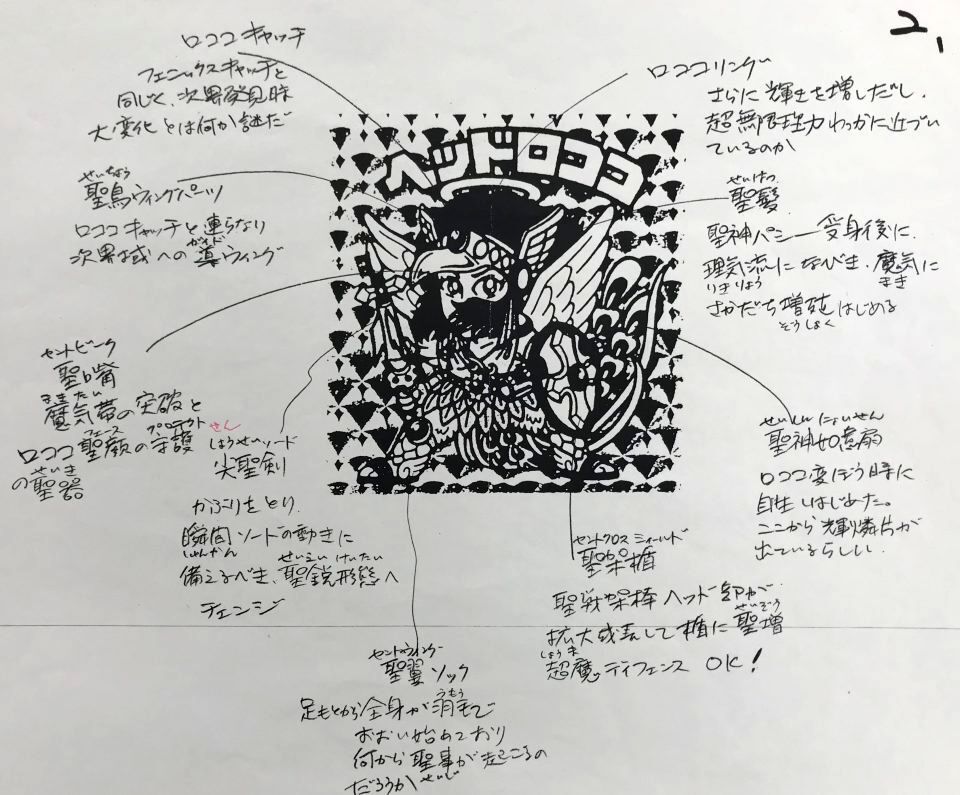 2,
ロココキャッチ
フェニックスキャッチと
同じく、次界発見時
大変化とは何か謎だ
ロココリング
さらに輝きを増しだし、
超無限理力わっかに近づい
ているのか
ヘッドロココ
せいちょう
聖鳥ウィングパーツ
ロココキャッチと連らなり
ガイド
次界域への導ウィング
せいはつ
聖髪
聖神パシー受身後に、
理気流になびき、魔気に
りきりゅう まき
さかだち増殖はじめる
ぞうしょく
セントビーク
聖嘴
まきたい
魔気帯の突破と
フェース プロテクト
ロココ聖顔の守護
せいき
の聖器
せん
しょうせいソード
尖聖剣
かぶりをとり、
瞬間ソードの動きに
しゅんかん
せいえいけいたい
備えるべき、聖鋭形態へ
チェンジ
せいしんにょいせん
聖神如意扇
ロココ変ぼう時に
自生しはじめた。
ここから輝燐片が
出ているらしい。
セントクロスシィールド
聖架楯
聖戦架棒ヘッド部が
せいぞう
拡大成長して楯に聖増
しょうま
超魔ディフェンス OK!
セントウィング
聖翼ソック
うもう
足もとから全身が羽毛で
おおい始めており
何から聖事が起こるの
せいじ
だろうか